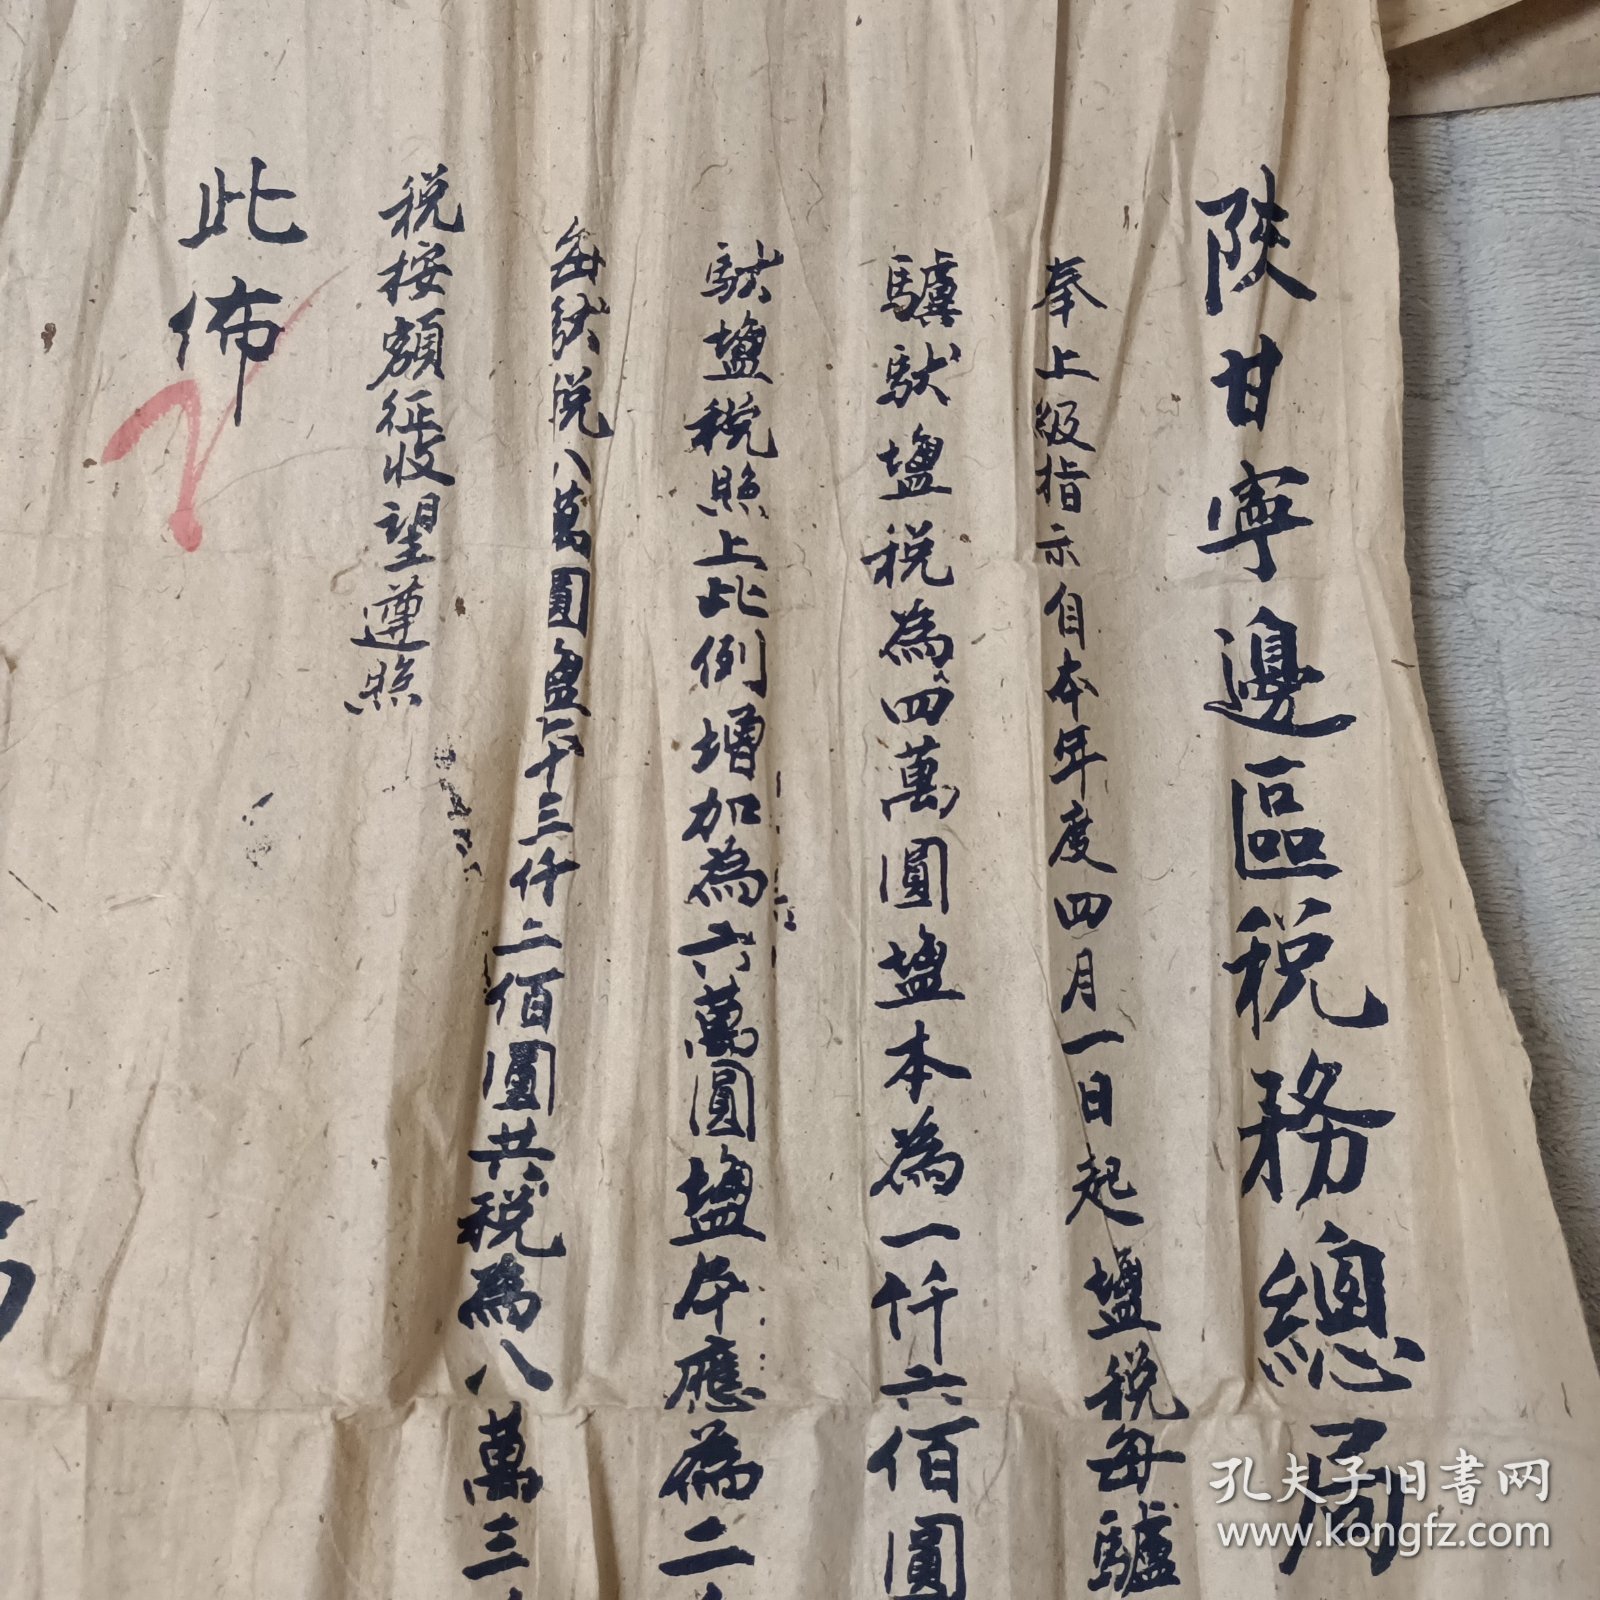 陝甘寧邊區税務總局
奉上級指示自本年度四月一日起鹽税每驢
驥馱鹽税為四萬圓鹽本為一仟六佰圓
馱鹽税照上比例增加為六萬圓鹽本應為二
每馱税八萬圓鹽本三仟二佰圓共税為八萬三
税按額征收望遵照
此佈
孔夫子旧书网
www.kongfz.com